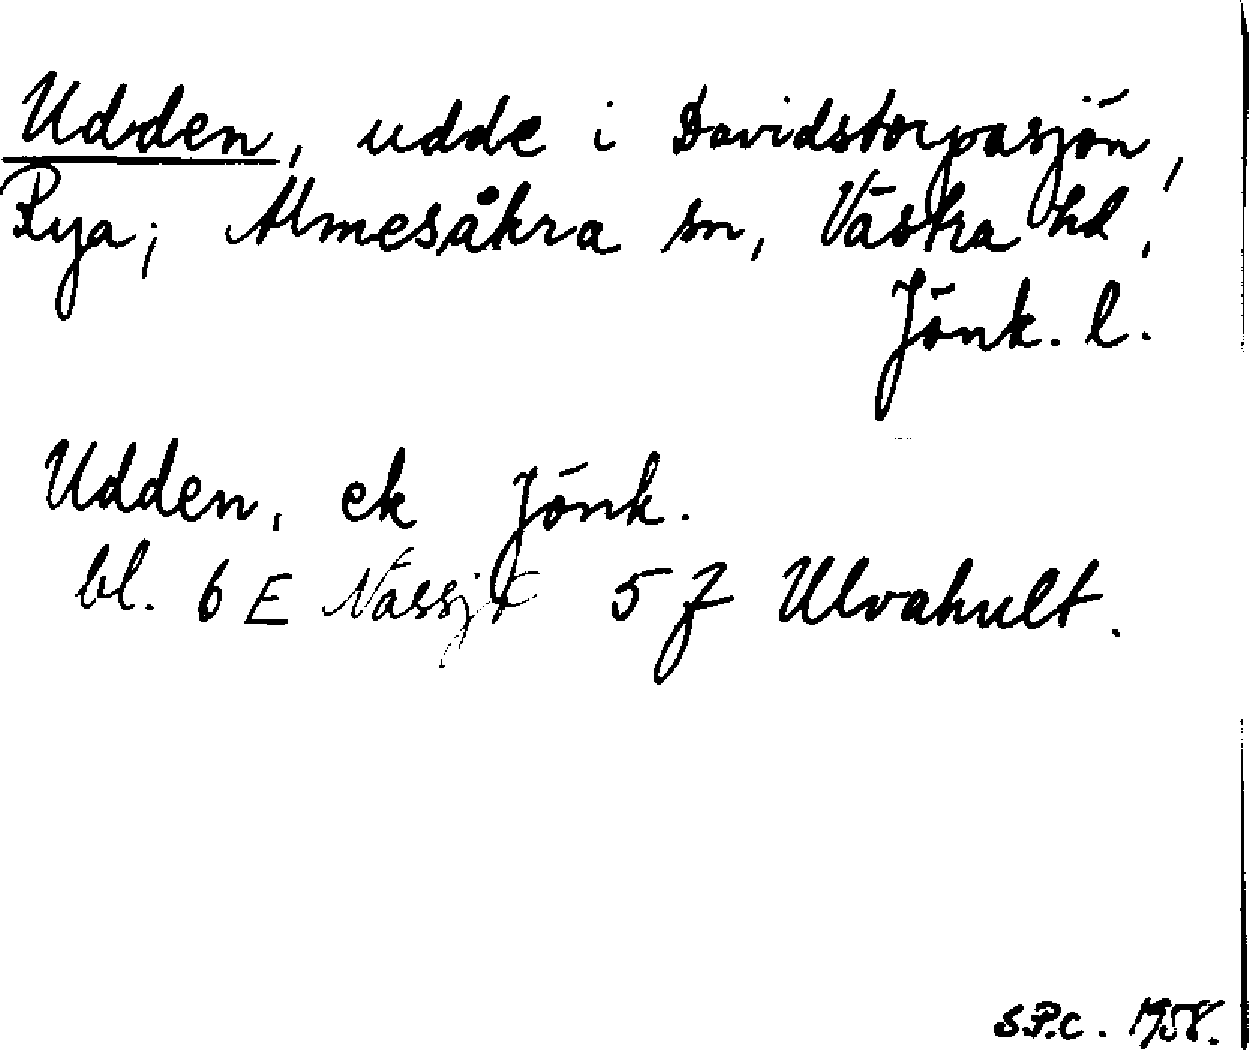 Udden, udde i Davidstorpasjön,
Rya; Almesåkra sn, Västra hd,
Jönk. l.
Udden, ek Jönk.
bl. 6 E Nässjö 5 f Ulvahult.
S.P.C. 1958.